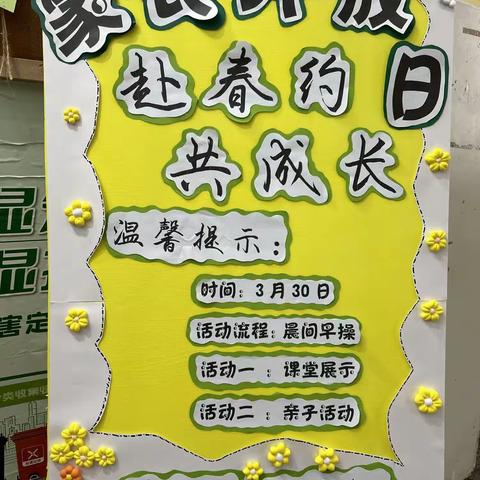 家长开放日
赴春约
共成长
温馨提示：
时间：3月30日
活动流程：晨间早操
活动一：课堂展示
活动二：亲子活动